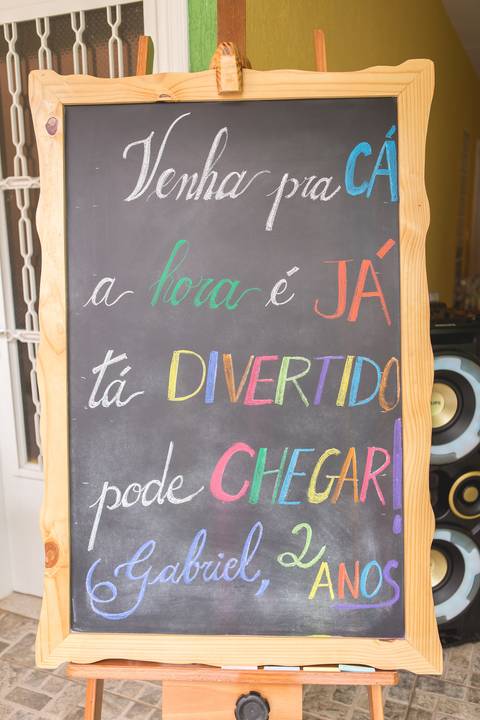 Venha pra CÁ
a hora é JÁ
tá DIVERTIDO
pode CHEGAR!
Gabriel, 2 ANOS